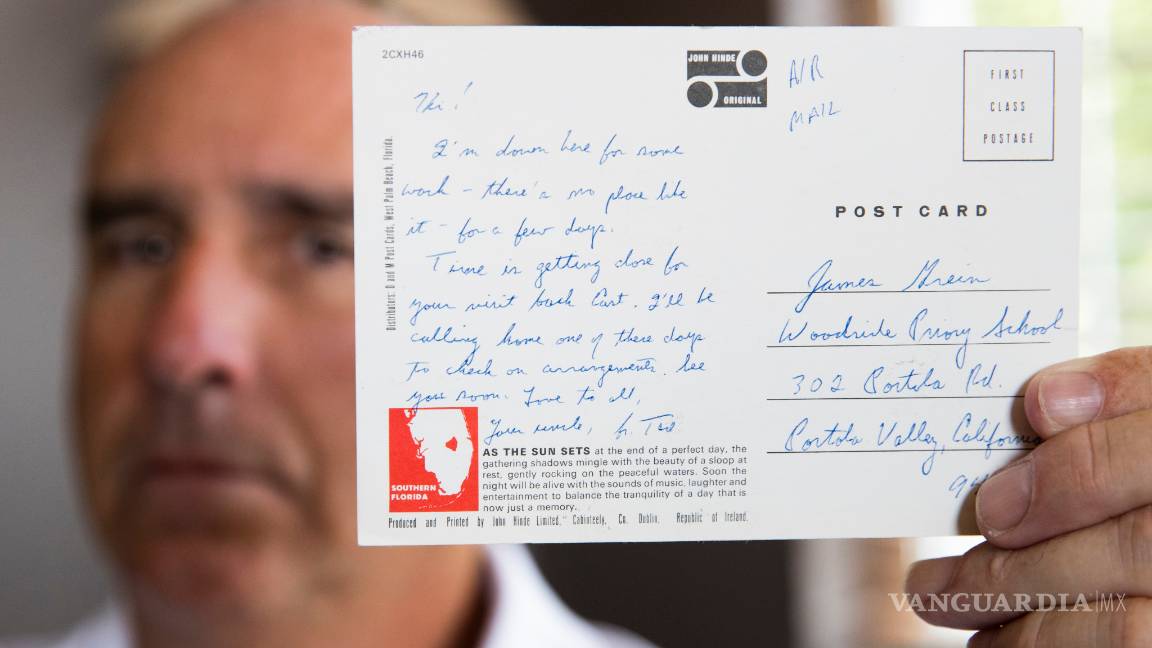 2CXH46
JOHN HINDE
ORIGINAL
AIR
MAIL
FIRST
CLASS
POSTAGE
Hi!
I'm down here for some
work – there's no place like
it – for a few days.
Time is getting close for
your visit back East. I'll be
calling home one of these days
to check on arrangements. See
you soon. Love to all,
Your uncle, Fr. Ted
Distributors: D and M Post Cards, West Palm Beach, Florida.
SOUTHERN
FLORIDA
AS THE SUN SETS at the end of a perfect day, the
gathering shadows mingle with the beauty of a sloop at
rest, gently rocking on the peaceful waters. Soon the
night will be alive with the sounds of music, laughter and
entertainment to balance the tranquility of a day that is
now just a memory.
Produced and Printed by John Hinde Limited, Cabinteely, Co. Dublin, Republic of Ireland.
POST CARD
James Grein
Woodside Priory School
302 Portola Rd.
Portola Valley, California
94
VANGUARDIA|MX